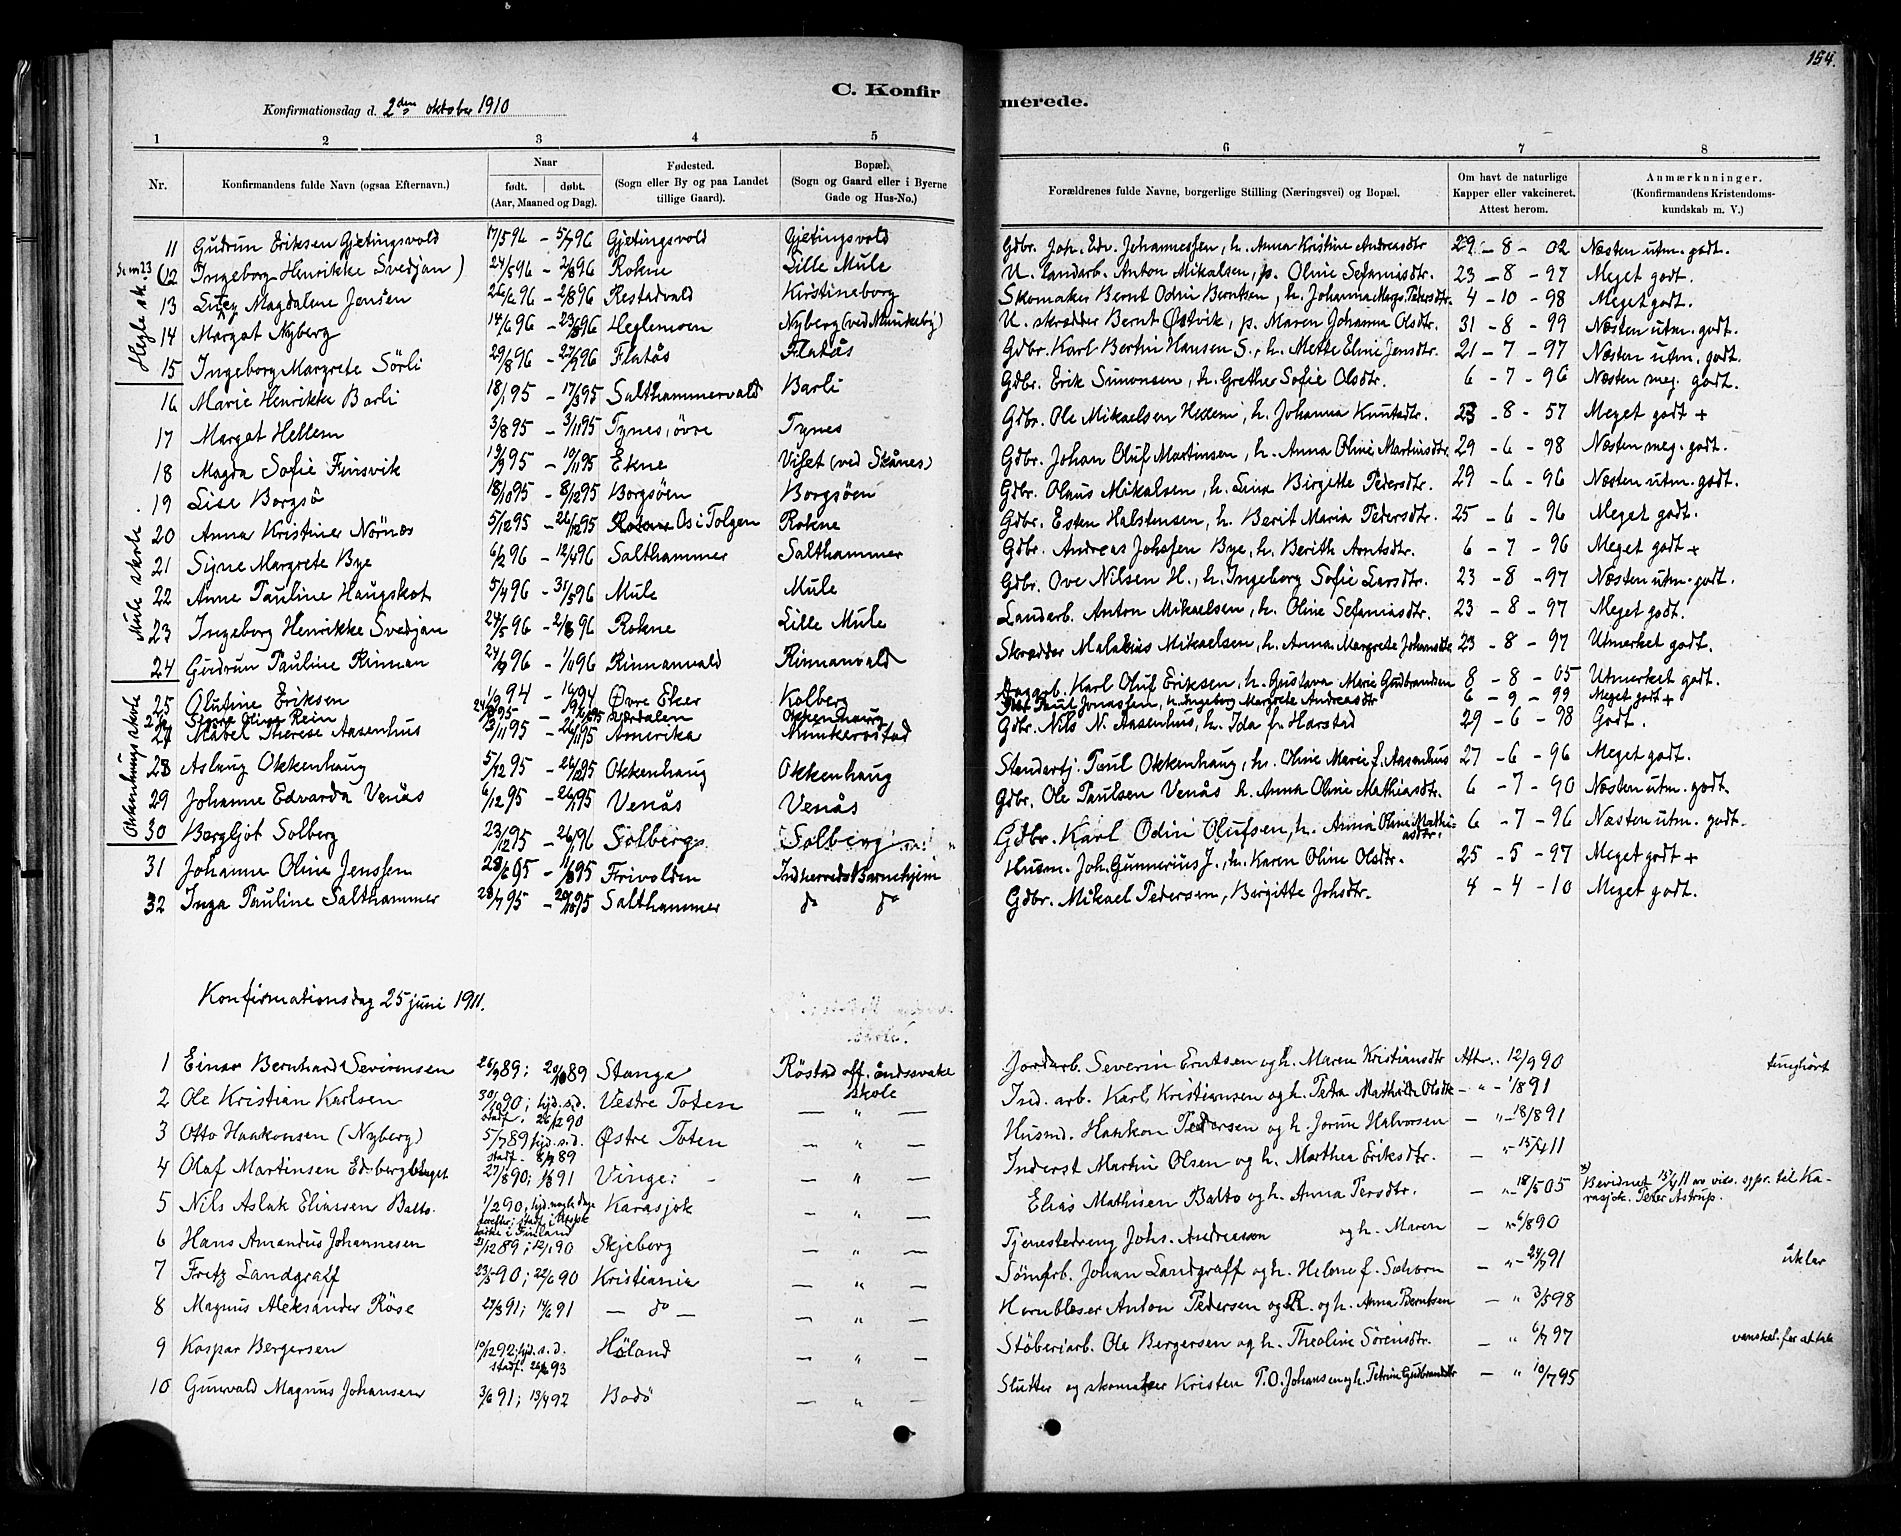 154.
C. Konfirmerede.
Konfirmationsdag d. 2den oktober 1910
1 2 3 4 5 6 7 8
Nr. Konfirmandens fulde Navn (ogsaa Efternavn.) Naar født. døbt. (Aar, Maaned og Dag). Fødested. (Sogn eller By og paa Landet tillige Gaard). Bopæl. (Sogn og Gaard eller i Byerne Gade og Hus-No.) Forældrenes fulde Navne, borgerlige Stilling (Næringsvei) og Bopæl. Om havt de naturlige Kapper eller vakcineret. Attest herom. Anmærkninger. (Konfirmandens Kristendomskundskab m. V.)
Hegle sk.
11 Gudrun Eriksen Gjetingsvold 17/5 96 – 5/7 96 Gjetingsvold Gjetingsvold Gdbr. Joh. Edv. Johannessen, h. Anna Kristine Andreasdtr 29 – 8 – 02 Næsten utm. godt.
Se nr 23 (12 Ingeborg Henrikke Svedjan) 24/5 96 – 2/8 96 Rokne Lille Mule U. landarb. Anton Mikalsen, p. Oline Sefaniasdtr. 23 – 8 – 97 Meget godt.
13 Magdalene Jensen 26/6 96 – 2/8 96 Restadvald Kirstineborg Skomaker Bernt Odin Berntsen, h. Johanna Margr. Pedersdtr. 4 – 10 – 98 Meget godt.
14 Margot Nyberg 14/6 96 – 23/8 96 Heglemoen Nyberg (ved Munkeby) U. skrædder Bernt Østvik, p. Maren Johanna Olsdtr. 31 – 8 – 99 Næsten utm. godt.
15 Ingeborg Margrete Sörli 29/8 96 – 27/9 96 Flatås Flatås Gdbr. Karl Bertin Hansen S., h. Mette Eline Jensdtr. 21 – 7 – 97 Næsten utm. godt.
Mule skole
16 Marie Henrikke Barli 18/1 95 – 17/3 95 Salthammervald Barli Gdbr. Erik Simonsen, h. Grethe Sofie Olsdtr. 6 – 7 – 96 Næsten meg. godt.
17 Margot Hellem 3/8 95 – 3/11 95 Tynes, øvre Tynes Gdbr. Ole Mikaelsen Hellem, h. Johanna Knutsdtr. 23 – 8 – 57 Meget godt +
18 Magda Sofie Finsvik 19/9 95 – 10/11 95 Ekne Viset (ved Skånes) Gdbr. Johan Oluf Martinsen, h. Anna Oline Martinsdtr. 29 – 6 – 98 Næsten meg. godt.
19 Lise Borgsö 18/10 95 – 8/12 95 Borgsöen Borgsöen Gdbr. Olaus Mikalsen, h. Lina Birgitte Pedersdtr. 29 – 6 – 96 Næsten utm. godt.
20 Anna Kristine Nörnæs 5/12 95 – 26/12 95 Os i Tolgen Rokne Gdbr. Esten Halstensen, h. Berit Maria Pedersdtr. 25 – 6 – 96 Meget godt.
21 Signe Margrete Bye 6/2 96 – 12/4 96 Salthammer Salthammer Gdbr. Andreas Johssen Bye, h. Berith Arntsdtr. 6 – 7 – 96 Meget godt +
22 Anne Pauline Haugskot 5/4 96 – 31/5 96 Mule Mule Gdbr. Ove Nilsen H., h. Ingeborg Sofie Larsdtr. 23 – 8 – 97 Næsten utm. godt.
23 Ingeborg Henrikke Svedjan 24/5 96 – 2/8 96 Rokne Lille Mule Landarb. Anton Mikaelsen, h. Oline Sefaniasdtr. 23 – 8 – 97 Meget godt.
24 Gudrun Pauline Rinnan 24/9 96 – 1/10 96 Rinnanvald Rinnanvald Skrædder Malakias Mikaelsen, h. Anna Margrete Johansdtr. 23 – 8 – 97 Utmerket godt.
Okkenhaug skole
25 Olutine Eriksen 1/9 94 – 16/9 94 Øvre Eker Kolberg Karl Oluf Eriksen, h. Gustava Marie Gudbrandsen 8 – 8 – 05 Utmerket godt.
Oline Rein Værdalen Okkenhaug Paul Jonassen, h. Ingeborg Margrete Andreasdtr 6 – 9 – 99 Meget godt +
27 Mabel Therese Aasenhus 13/11 95 – 26/11 95 Amerika Munkerostad Gdbr. Nils N. Aasenhus, h. Ida f. Harstad 29 – 6 – 98 Godt.
28 Aslaug Okkenhaug 5/12 95 – 26/12 95 Okkenhaug Okkenhaug Paul Okkenhaug, h. Oline Marie f. Aasenhus 27 – 6 – 96 Meget godt.
29 Johanne Edvarda Venås 6/12 95 – 26/12 95 Venås Venås Gdbr. Ole Paulsen Venås h. Anna Oline Mathiasdtr. 6 – 7 – 90 Næsten utm. godt.
30 Bergljot Solberg 23/12 95 – 26/1 96 Solberg Solberg Gdbr. Karl Odin Olufsen, h. Anna Oline Mathiasdtr. 6 – 7 – 96 Næsten utm. godt.
31 Johanne Oline Jenssen 28/6 95 – 11/8 95 Frivolden Indherreds Barnehjem Husm. Joh. Gunnerius J., h. Karen Oline Olsdtr. 25 – 5 – 97 Meget godt +
32 Inga Pauline Salthammer 28/7 95 – 20/10 95 Salthammer do do Gdbr. Mikael Pedersen, Birgitte Johsdtr. 4 – 4 – 10 Meget godt.
Konfirmationsdag 25 juni 1911.
1 Einar Bernhard Severinsen 26/9 89; 20/10 89 Stange Röstad off. åndssvake skole Jordarb. Severin Erntsen og h. Maren Kristiansdtr Att. 12/9 90 tunghört
2 Ole Kristian Karlsen 30/10 90; hjd. s. d. stadf. 26/12 90 Vestre Toten — „ — Ind. arb. Karl Kristiansen og h. Petra Mathilde Olsdtr – „ – 1/8 91
3 Otto Haakonsen (Nyberg) 5/7 89 hjd. s. d. stadf. 8/9 89 Østre Toten — „ — Husmd. Haakon Pedersen og h. Jorun Halvorsen – „ – 18/8 91
4 Olaf Martinsen 27/8 90; 1/1 91 Vinger — „ — Inderst Martin Olsen og h. Marthea Eriksdtr. – „ – 15/4 11
5 Nils Aslak Eliassen Balto. 1/2 90, hjd. Karasjok — „ — Elias Mathisen Balto og h. Anna Persdtr. – „ – 18/5 05 Bevidnet 15/4 11 av vic. sgpr. til Karasjok. Peter Astrup.
6 Hans Amandus Johannesen 21/12 89; 12/1 90 Skjeberg — „ — Tjenestedreng Johs. Andreassen og h. Maren – „ – 6/8 90
7 Fretz Landgraff 23/5 90; 22/6 90 Kristiania — „ — Sömfrb. Johan Landgraff og h. Helene f. Schorn – „ – 24/7 91 uklar
8 Magnus Aleksander Röse 27/3 91; 14/6 91 — do — — „ — Hornblæser Anton Pedersen R. og h. Anna Berntsen – „ 3/5 98
9 Kaspar Bergersen 10/12 92; hjd. s. d. stadf. 26/2 93 Høland — „ — Stöberiarb. Ole Bergersen og h. Theoline Sörensdtr. – „ 6/7 97 vanskel. for at tale
10 Gunvald Magnus Johansen 3/6 91; 13/4 92 Bodö — „ — Slutter og skomaker Kristen P. O. Johansen og h. Petrine Gudbrandsdtr – „ 10/7 95